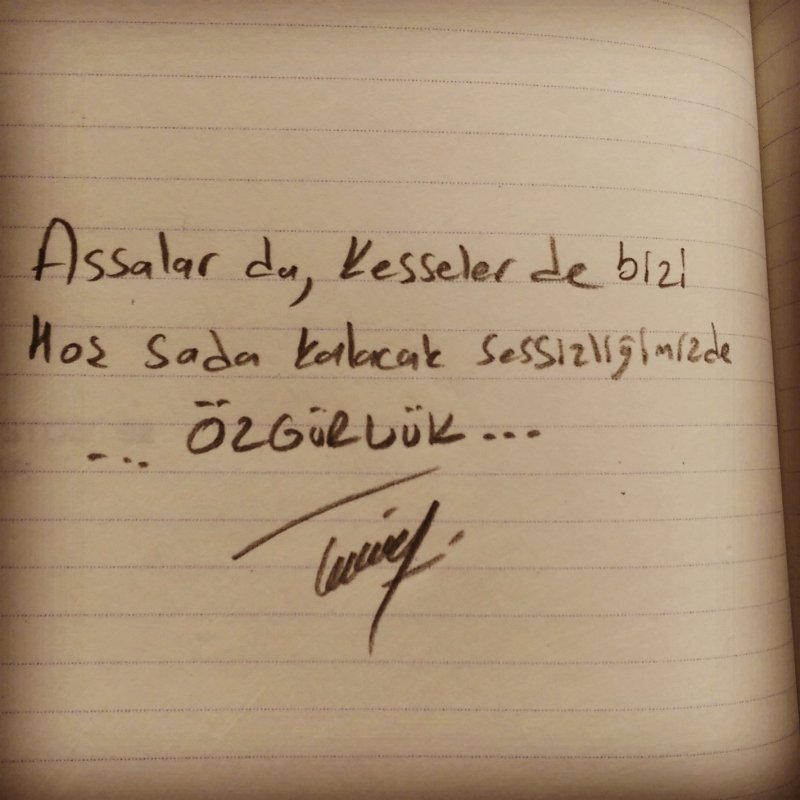 Assalar da, kesseler de bizi
Hoş sada kalacak sessizliğimizde
... ÖZGÜRLÜK...